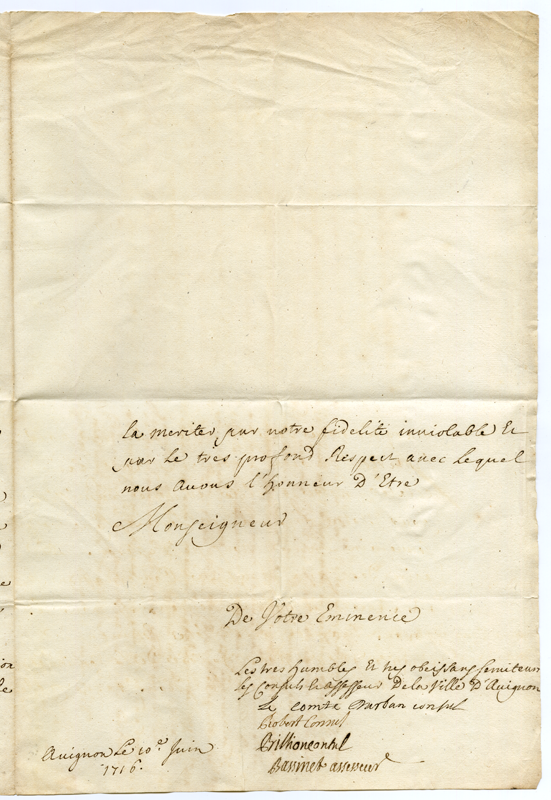 la meriter par notre fidelité inviolable Et
par le tres profond Respect avec lequel
nous avons l'honneur D'Etre
Monseigneur
De Votre Eminence
Les tres humbles Et tres obeissans serviteurs
les Consuls & assesseur De la Ville D'Avignon
Le comte Darban consul
Robert Consul
Crillion consul
Bassinet assesseur
Avignon Le 10e Juin
1716.